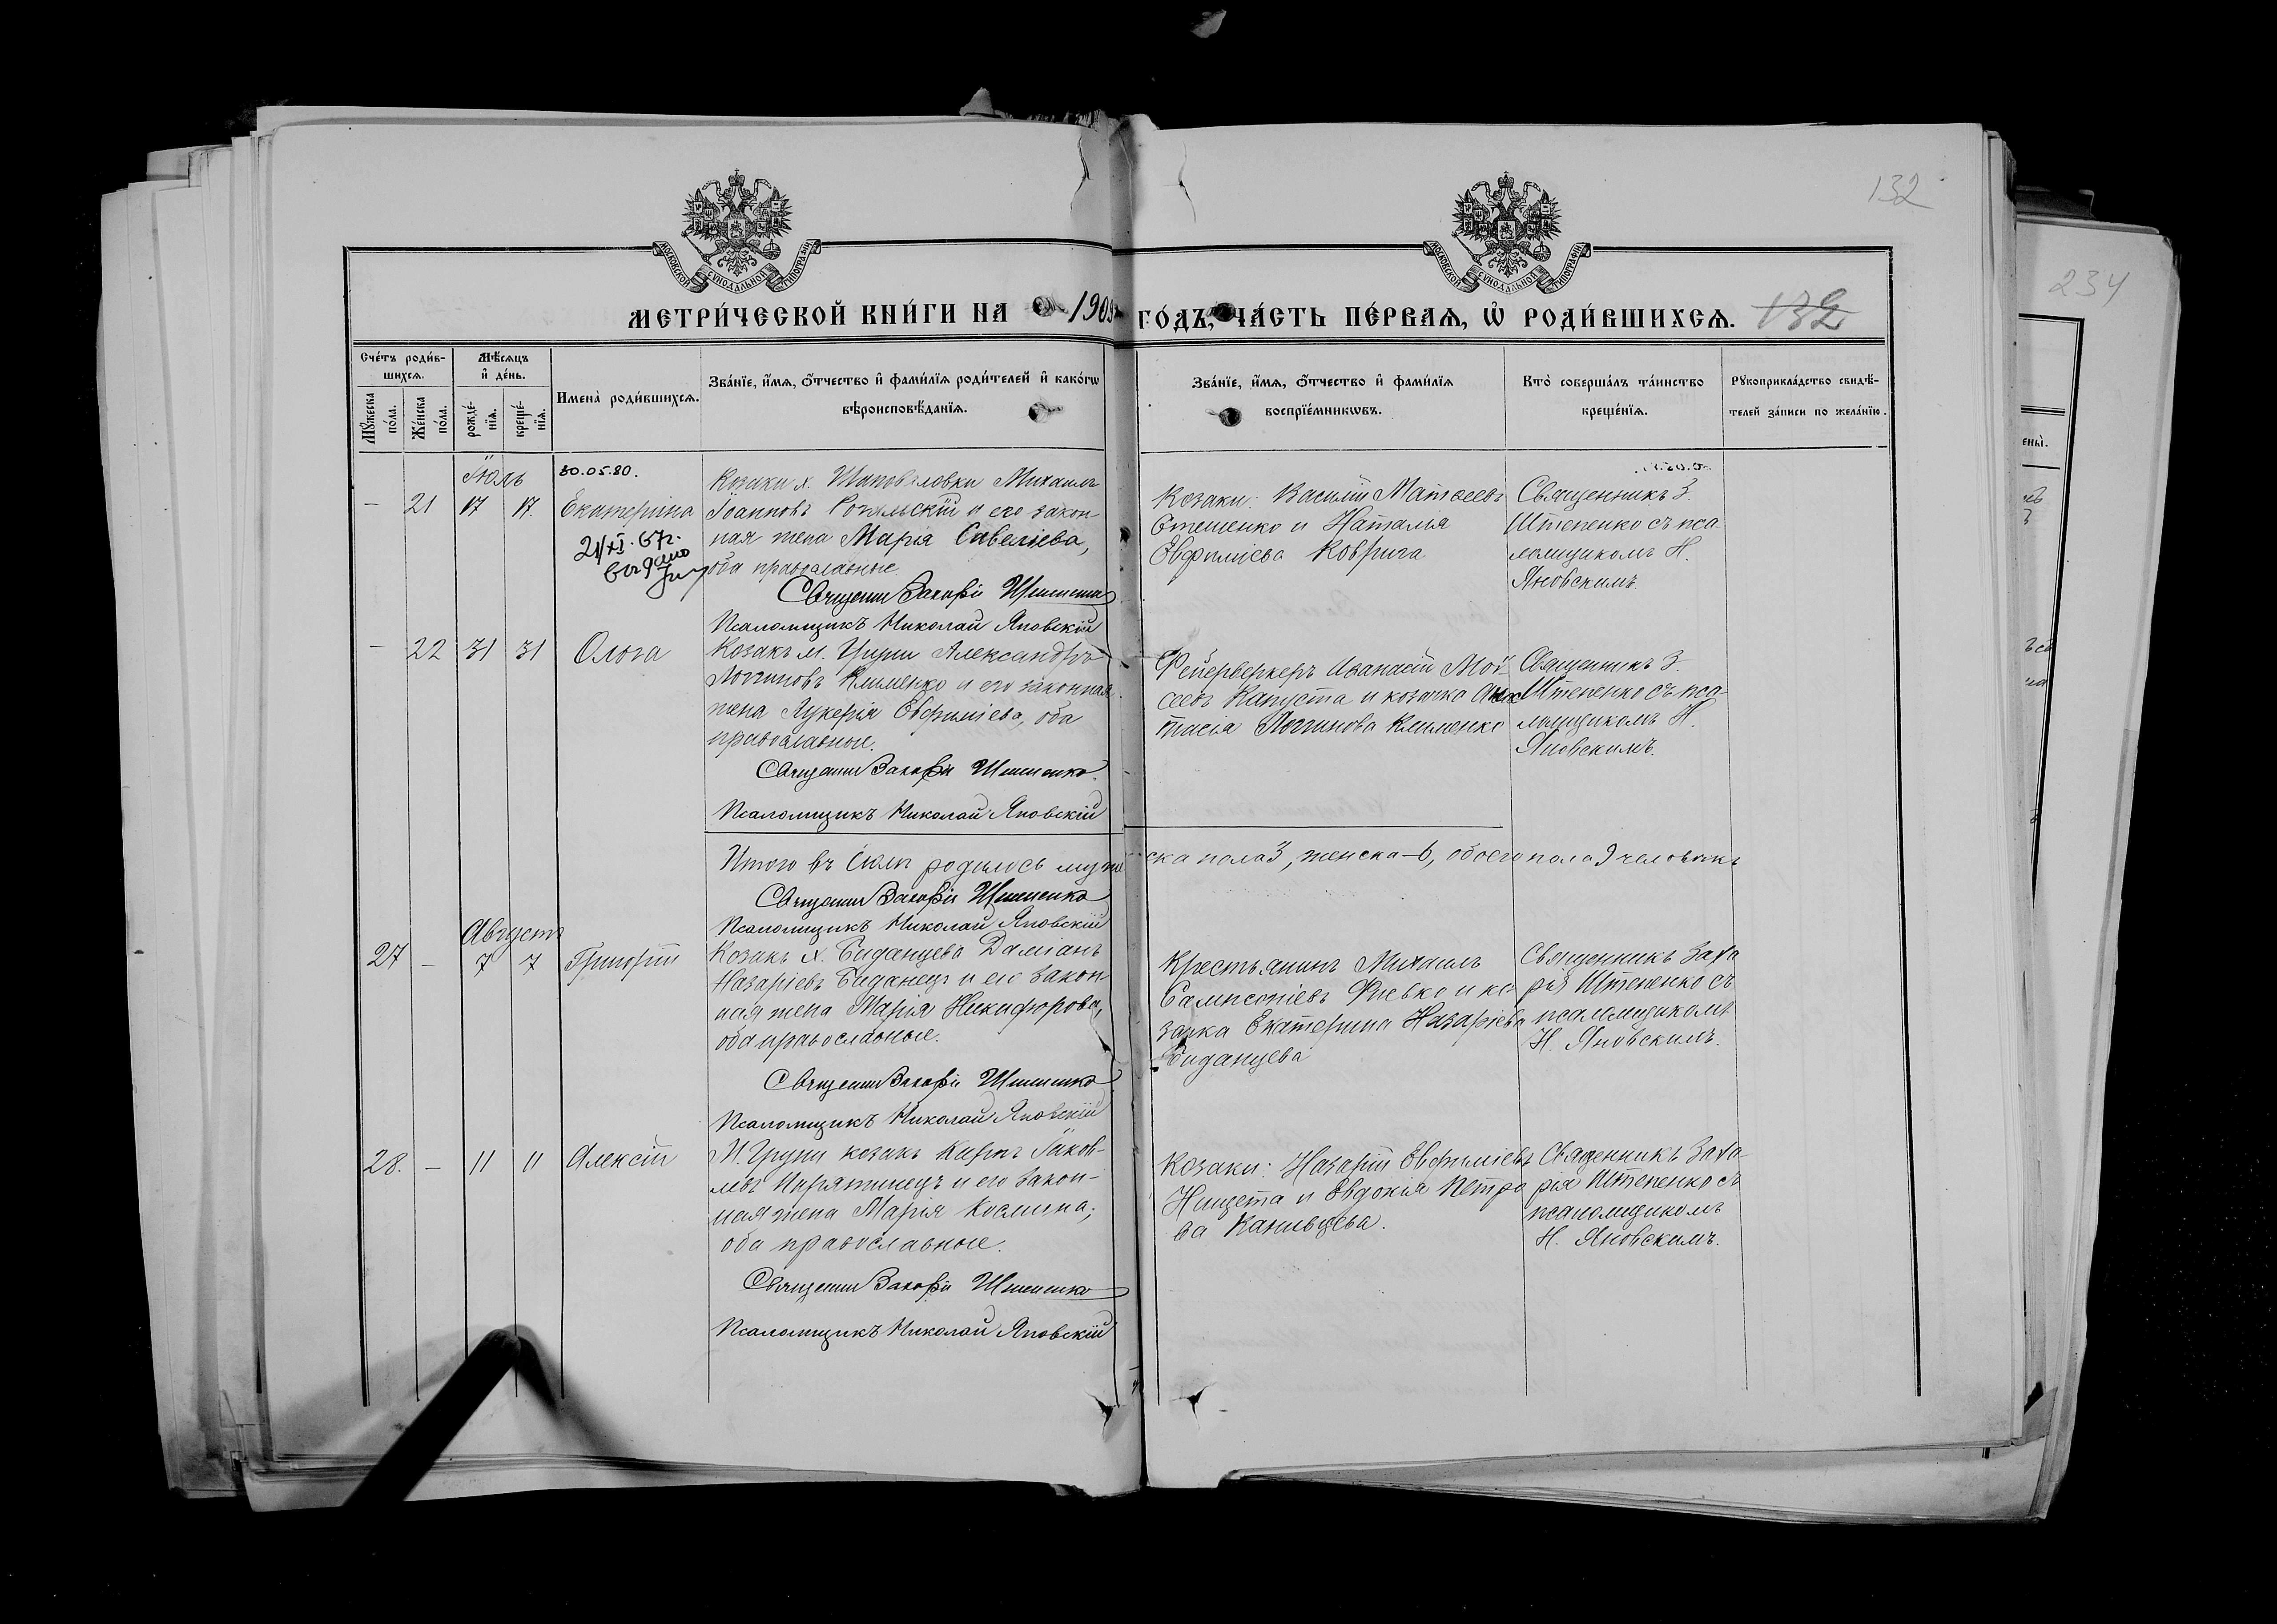 132
234
МОСКОВСКОЙ СѴНОДАЛЬНОЙ ТИПОГРАФІИ
МОСКОВСКОЙ СѴНОДАЛЬНОЙ ТИПОГРАФІИ
МЕТРИ́ЧЕСКОЙ КНИ́ГИ НА 1909 ГО́ДЪ, ЧА́СТЬ ПЕ́РВАЯ, Ѡ҆ РОДИ́ВШИХСЯ. 132
Сче́тъ роди́в-
шихся.
Мꙋ́жеска по́ла.
Же́нска по́ла.
Мѣ́сяцъ и҆ де́нь.
рожде́-нїя.
креще́-нїя.
Имена̀ роди́вшихся.
Зва́нїе, и҆́мя, ѻ҆́тчество и҆ фами́лїя роди́телей и҆ како́гѡ
вѣроисповѣ́данїя.
Зва́нїе, и҆́мя, ѻ҆́тчество и҆ фами́лїя
воспрїе́мникѡвъ.
Кто̀ соверша́лъ та́инство
креще́нїя.
Рꙋкоприкла́дство свидѣ́-
телей за́писи по жела́нїю.
Іюль
30.05.80.
— 21 17 17. Екатерина
21/XI. 67г.
выдано
Козаки х. Шаповаловки Михаилъ
Іоанновъ и его закон
ная жена Марія Савеліева,
оба православные
Священн Захарій Штепенко
Псаломщикъ Николай Яновскій
Козаки: Василій Матвеевъ
Стешенко и Наталья
Евфиміева Коврига
Священникъ З.
Штепенко съ пса
ломщикомъ Н.
Яновскимъ
— 22 31 31 Ольга
Козакъ м. Груни Александръ
Логгиновъ Клименко и его законная
жена Лукерія Евфиміева, оба
православные.
Священн Захарій Штепенко
Псаломщикъ Николай Яновскій
Фейерверкеръ Афанасій Мой
сеевъ Капуста и козачка Анас
тасія Логгинова Клименко
Священникъ З.
Штепенко съ пса-
ломщикомъ Н.
Яновскимъ.
Итого въ Іюлѣ родилось мужеска пола 3, женска—6, обоего пола 9 человѣкъ
Священн Захарій Штепенко
Псаломщикъ Николай Яновскій
Августъ
27 — 7 7 Григорій
Козакъ х. Биданцева Даміанъ
Назаріевъ Биданецъ и его закон
ная жена Марія Никифорова,
оба православные.
Священн Захарій Штепенко
Псаломщикъ Николай Яновскій
Крестьянинъ Михаилъ
Сампсоніевъ и ко
зачка Екатерина Назаріева
Биданцева
Священникъ Заха
рія Штепенко съ
псаломщикомъ
Н. Яновскимъ.
28. — 11 11 Алексій
М. Груни козакъ Карпъ Іаков-
левъ Пирятинецъ и его закон-
ная жена Марія Космина;
оба православные.
Священн Захарій Штепенко
Псаломщикъ Николай Яновскій
Козаки: Назарій Евфиміевъ
Нищета и Евдокія Петро
ва Канивцева.
Священникъ Заха
рія Штепенко съ
псаломщикомъ
Н. Яновскимъ.